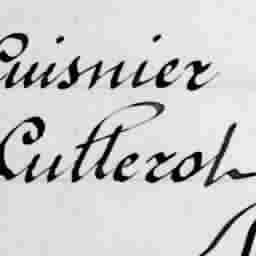 Cuisnier
Cutterol